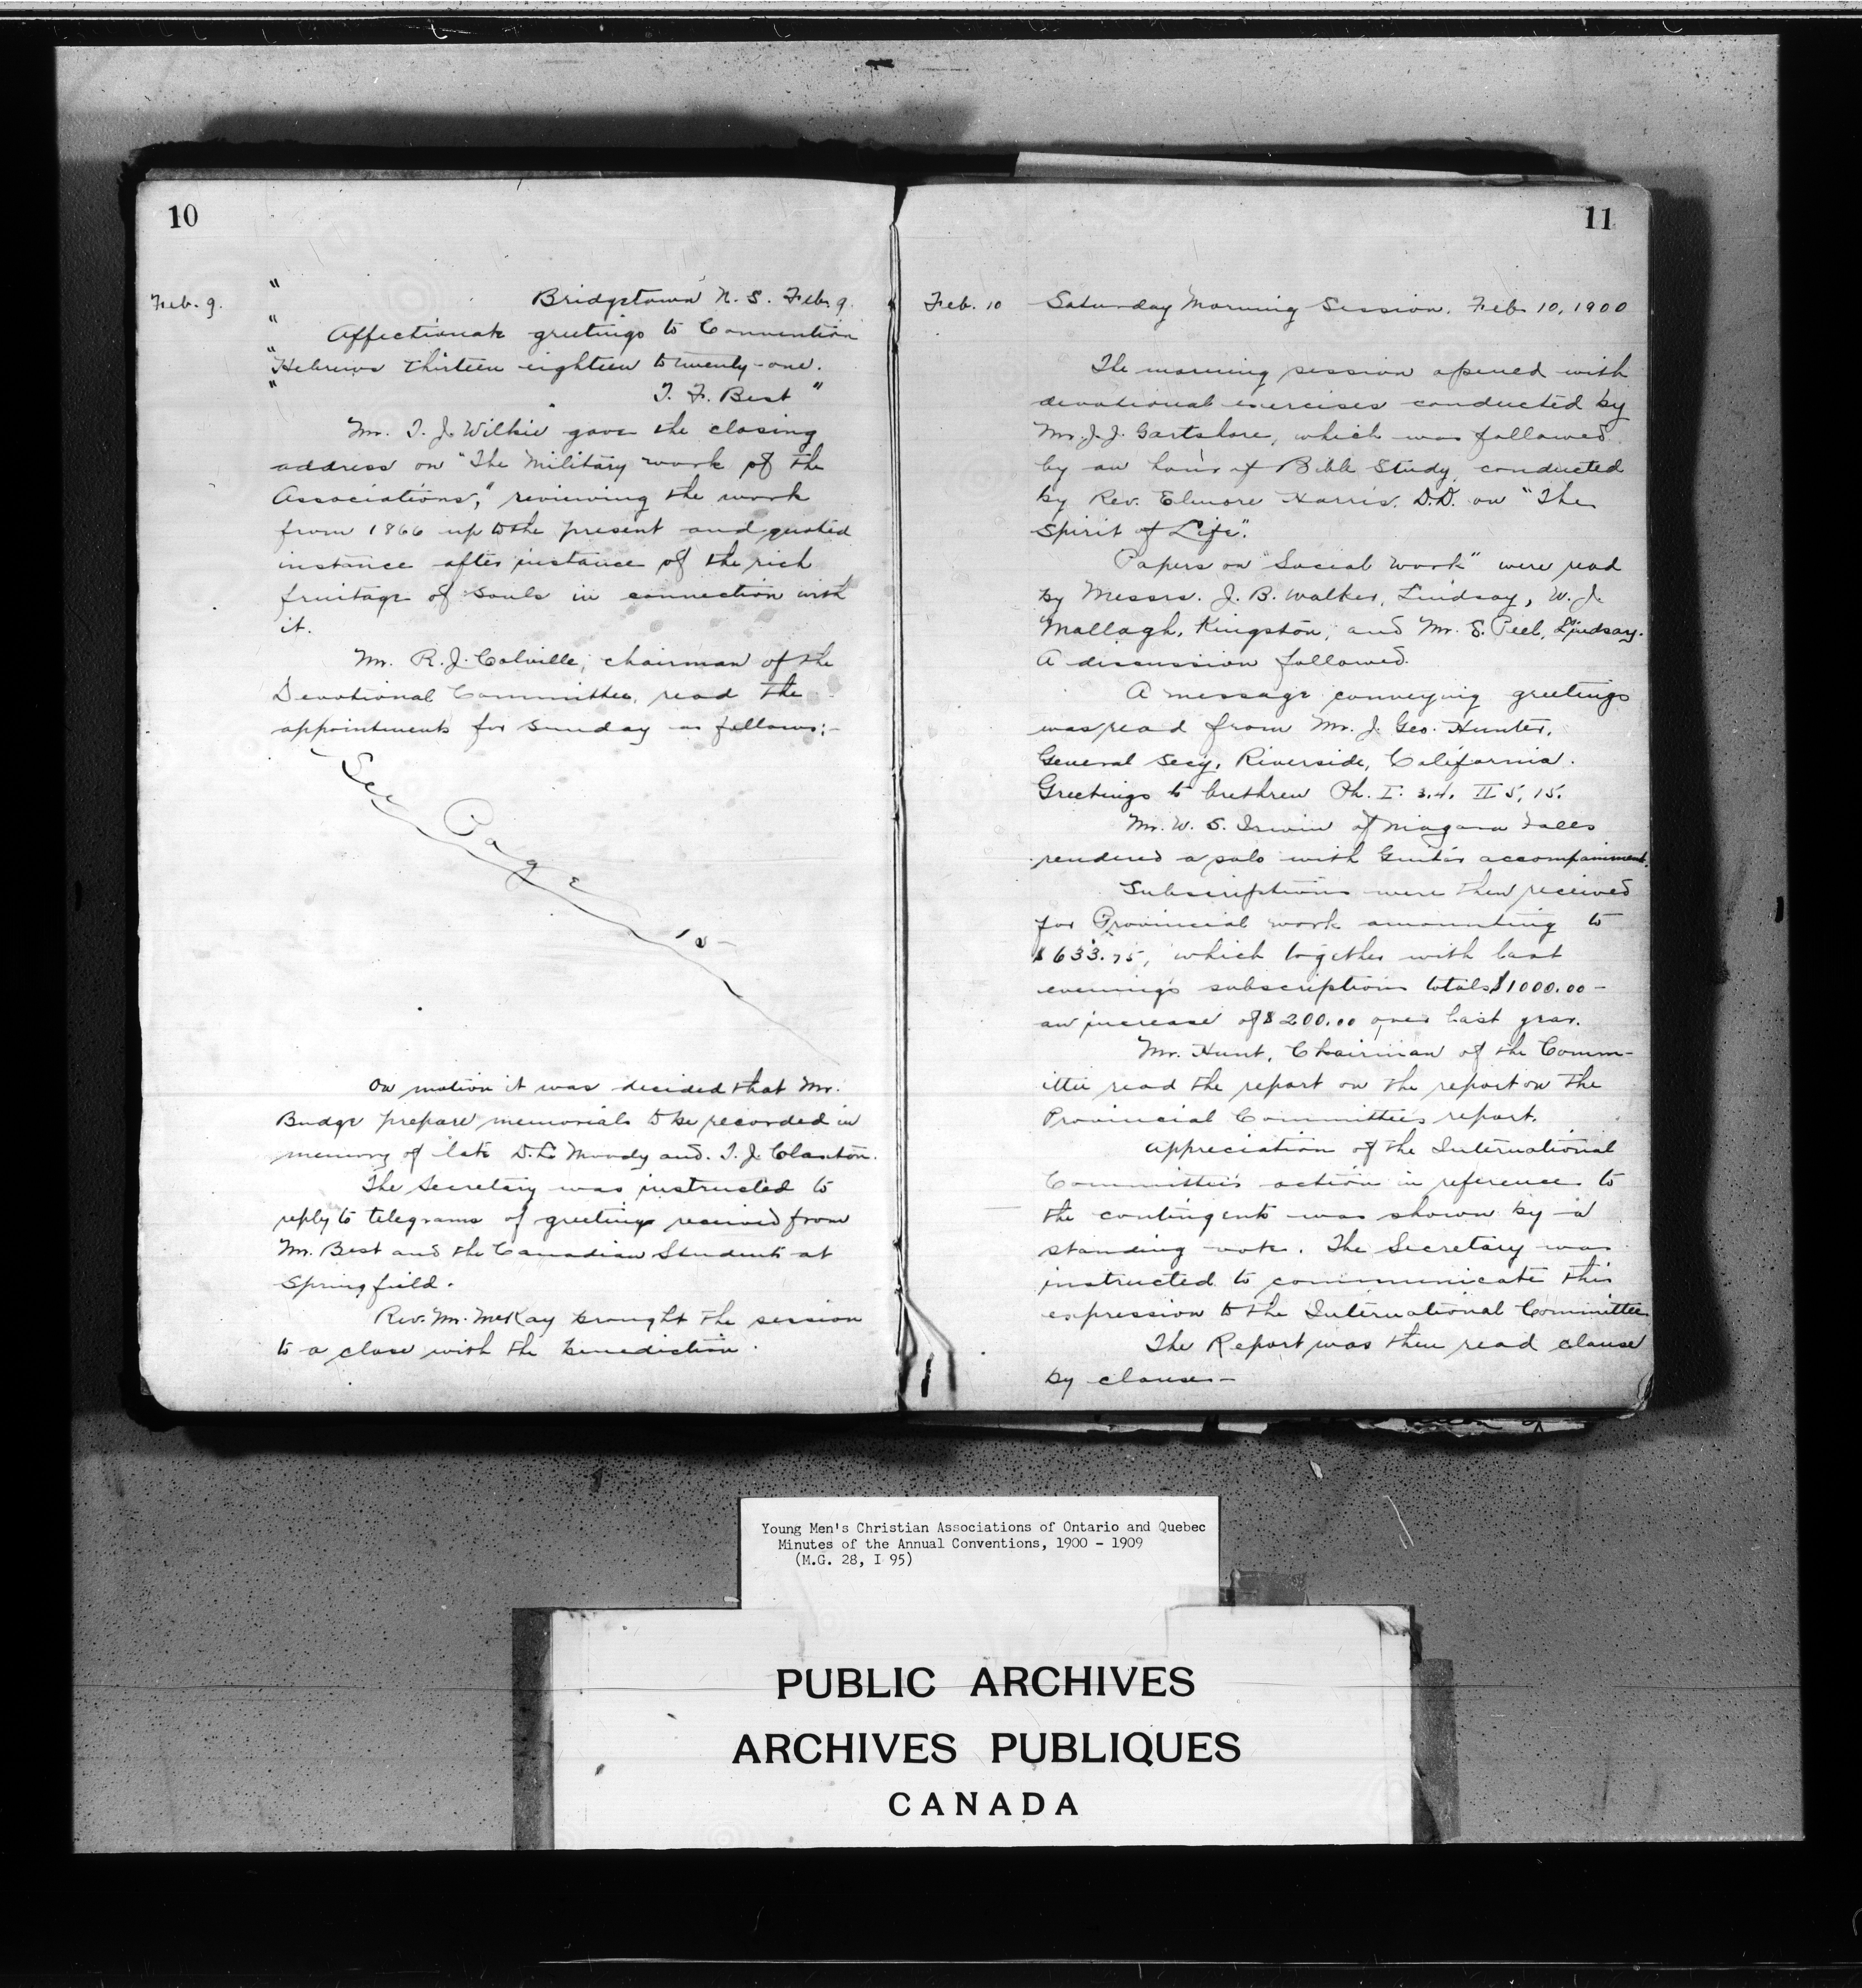 10
Feb. 9.
" Bridgetown N. S. Feb. 9.
" Affectionate greetings to Convention
"Hebrews thirteen eighteen to twenty-one.
" T. F. Best "
Mr. T. J. Wilkie gave the closing
address on "The Military work of the
Associations," reviewing the work
from 1866 up to the present and quoted
instance after instance of the rich
fruitage of souls in connection with
it.
Mr. R. J. Colville, chairman of the
Devotional Committee, read the
appointments for Sunday as follows:-
See Page
On motion it was decided that Mr.
Budge prepare memorials to be recorded in
memory of late D. L. Moody and T. J. Claxton.
The Secretary was instructed to
reply to telegrams of greetings received from
Mr. Best and the Canadian Students at
Springfield.
Rev. Mr. McKay brought the session
to a close with the benediction.
11
Feb. 10 Saturday Morning Session. Feb. 10, 1900
The morning session opened with
devotional exercises conducted by
Mr. J. J. Gartshore, which was followed
by an hour of Bible Study conducted
by Rev. Elmore Harris. D.D. on "The
Spirit of Life".
Papers on "Social Work" were read
by Messrs. J. B. Walker, Lindsay, W. J.
Mallagh, Kingston, and Mr. S. Peel, Lindsay.
A discussion followed.
A message conveying greetings
was read from Mr. J. Geo. Hunter,
General Secy, Riverside, California.
Greetings to brethren Ph. I. 3.4. II 5, 15.
Mr. W. S. Irwin of Niagara Falls
rendered a solo with Guitar accompainment.
Subscriptions were then received
for Provincial work amounting to
$633.75, which together with last
evening's subscriptions totals $1000.00 -
an increase of $200.00 over last year.
Mr. Hunt, Chairman of the Comm-
ittee read the report on the report on the
Provincial Committee's report.
Appreciation of the International
Committee's action in reference to
the contingents was shown by a
standing vote. The Secretary was
instructed to communicate this
expression to the International Committee
The Report was then read clause
by clause -
Young Men's Christian Associations of Ontario and Quebec
Minutes of the Annual Conventions, 1900 - 1909
(M.G. 28, I 95)
PUBLIC ARCHIVES
ARCHIVES PUBLIQUES
CANADA